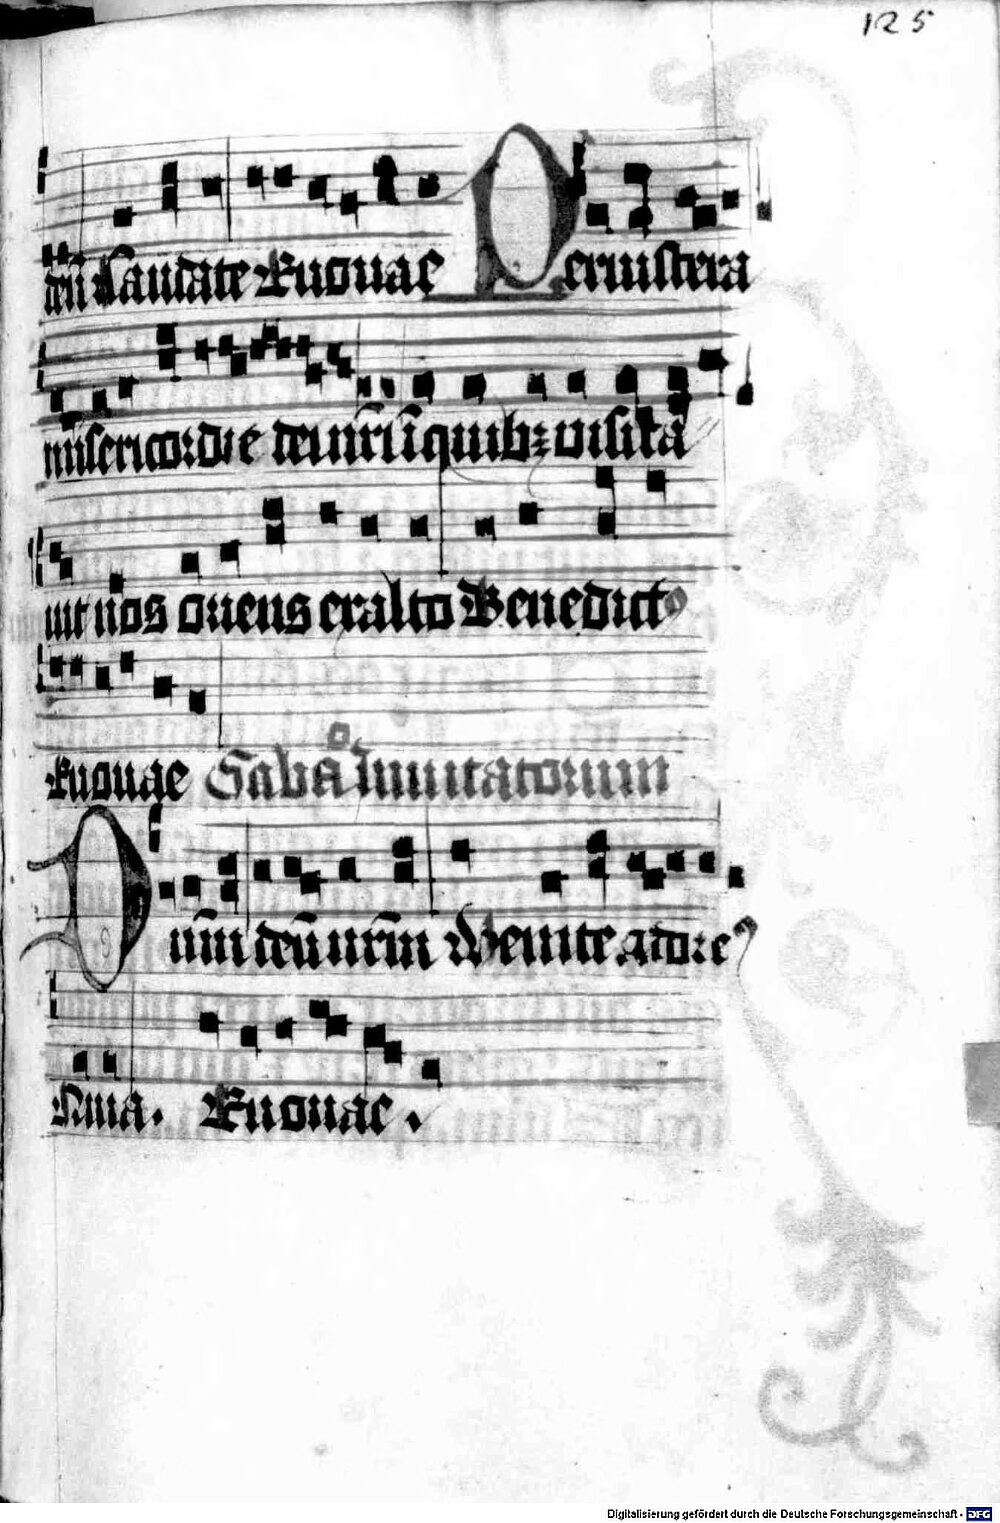 125
deū Laudate Euouae Per uiscera
misericordie dei nr̄i ī quibꝫ uisita
uit nos oriens exalto Benedict9
Euouae Sabbō Inuitatorium
Dn̄m deū nr̄m Venite adore
mus. Euouae.
Digitalisierung gefördert durch die Deutsche Forschungsgemeinschaft - DFG